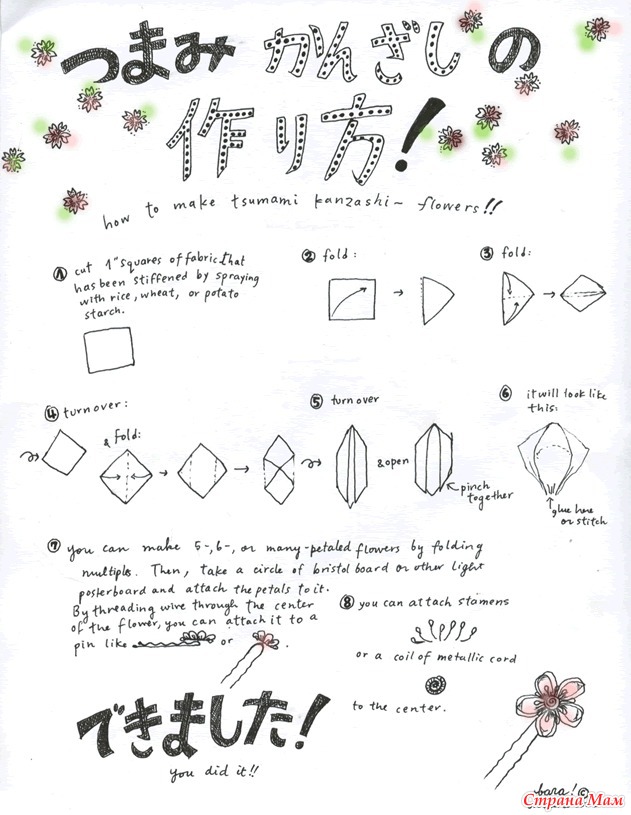 つまみ かんざし の
作り方!
how to make tsumami kanzashi~ flowers!!
① cut 1" squares of fabric that
has been stiffened by spraying
with rice, wheat, or potato
starch.
② fold:
③ fold:
④ turn over:
& fold:
⑤ turn over
& open
pinch
together
⑥ it will look like
this:
glue here
or stitch
⑦ you can make 5-, 6-, or many-petaled flowers by folding
multiples. Then, take a circle of bristol board or other light
posterboard and attach the petals to it.
By threading wire through the center
of the flower, you can attach it to a
pin like or .
⑧ you can attach stamens
or a coil of metallic cord
to the center.
できました!
you did it!!
bara! ©
Страна Мам